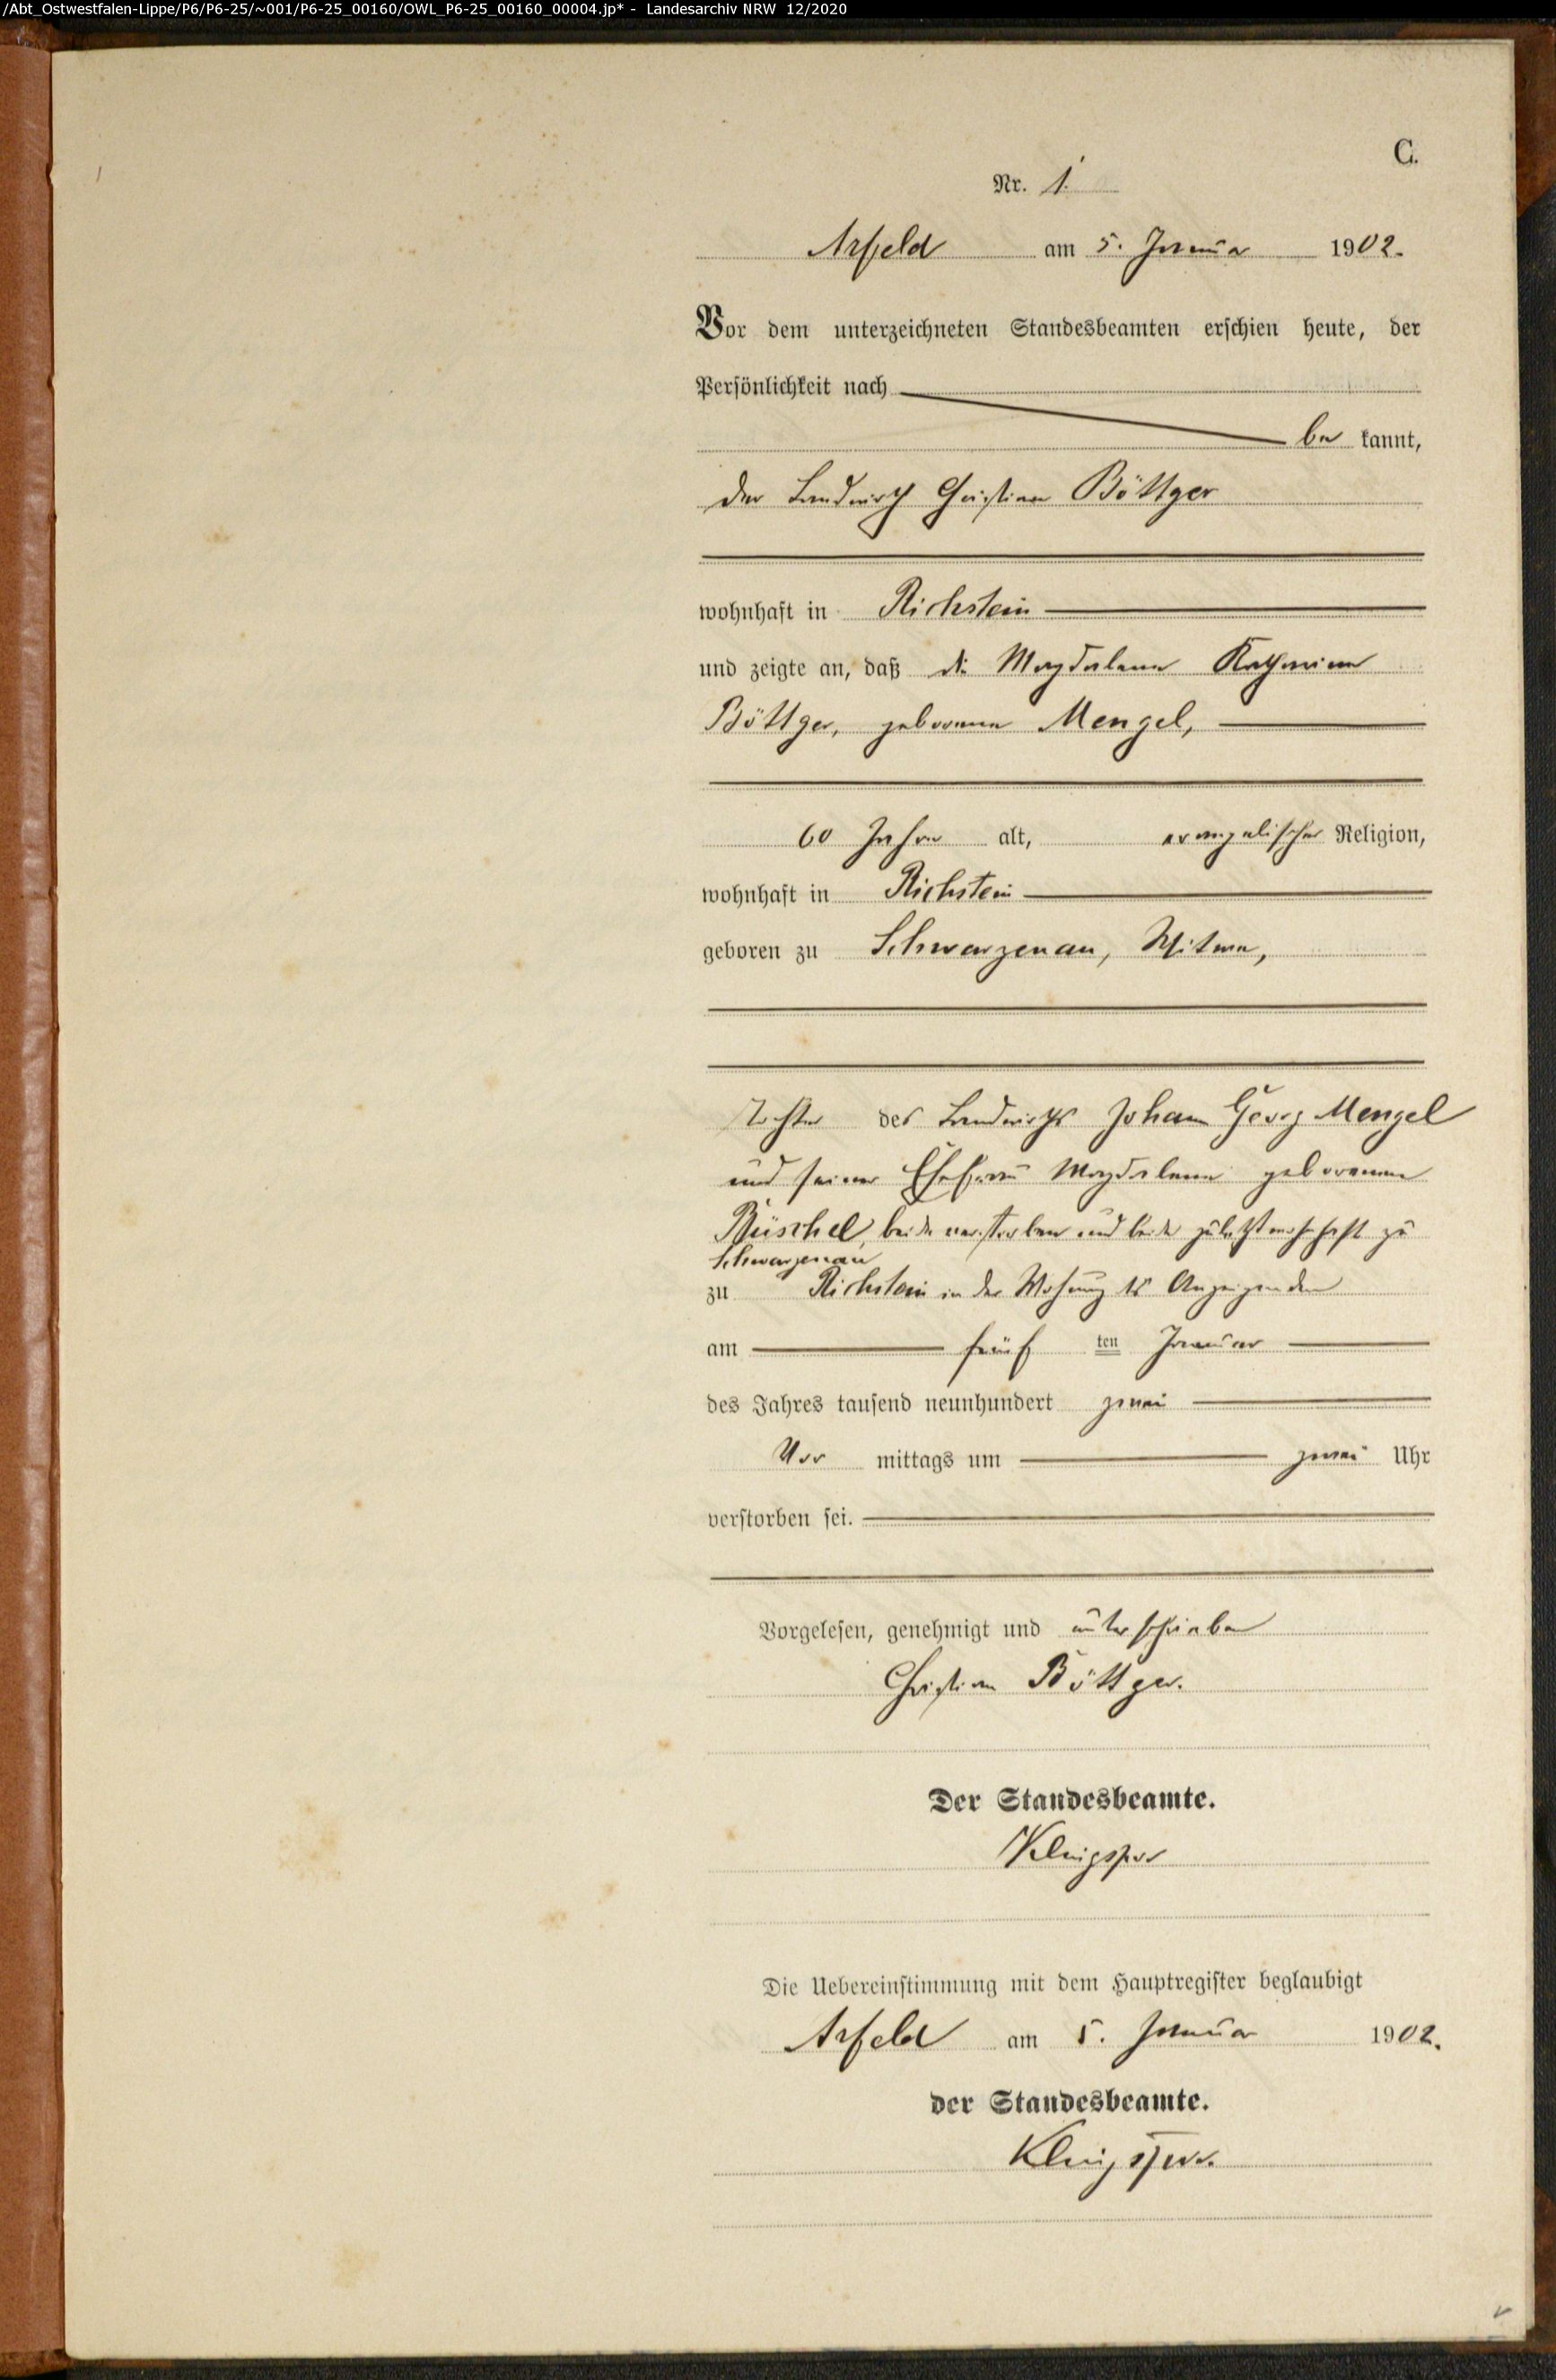 /Abt_Ostwestfalen-Lippe/P6/P6-25/~001/P6-25_00160/OWL_P6-25_00160_00004.jp* - Landesarchiv NRW 12/2020
C.
Nr. 1.
Arfeld am 5. Januar 1902.
Vor dem unterzeichneten Standesbeamten erschien heute, der
Persönlichkeit nach
be kannt,
der Landwirth Christian Böttger
wohnhaft in Richstein
und zeigte an, daß die Magdalena Katharina
Böttger, geborene Mengel,
60 Jahre alt, evangelischer Religion,
wohnhaft in Richstein
geboren zu Schwarzenau, Witwe,
Tochter des Landwirths Johann Georg Mengel
und seiner Ehefrau Magdalena geborenen
Büschel, beide verstorben und beide zuletzt wohnhaft zu
Schwarzenau
zu Richstein in der Wohnung des Anzeigenden
am fünf ten Januar
des Jahres tausend neunhundert zwei
Vor mittags um zwei Uhr
verstorben sei.
Vorgelesen, genehmigt und unterschrieben
Christian Böttger.
Der Standesbeamte.
Klingspor
Die Uebereinstimmung mit dem Hauptregister beglaubigt
Arfeld am 5. Januar 1902.
der Standesbeamte.
Klingspor.